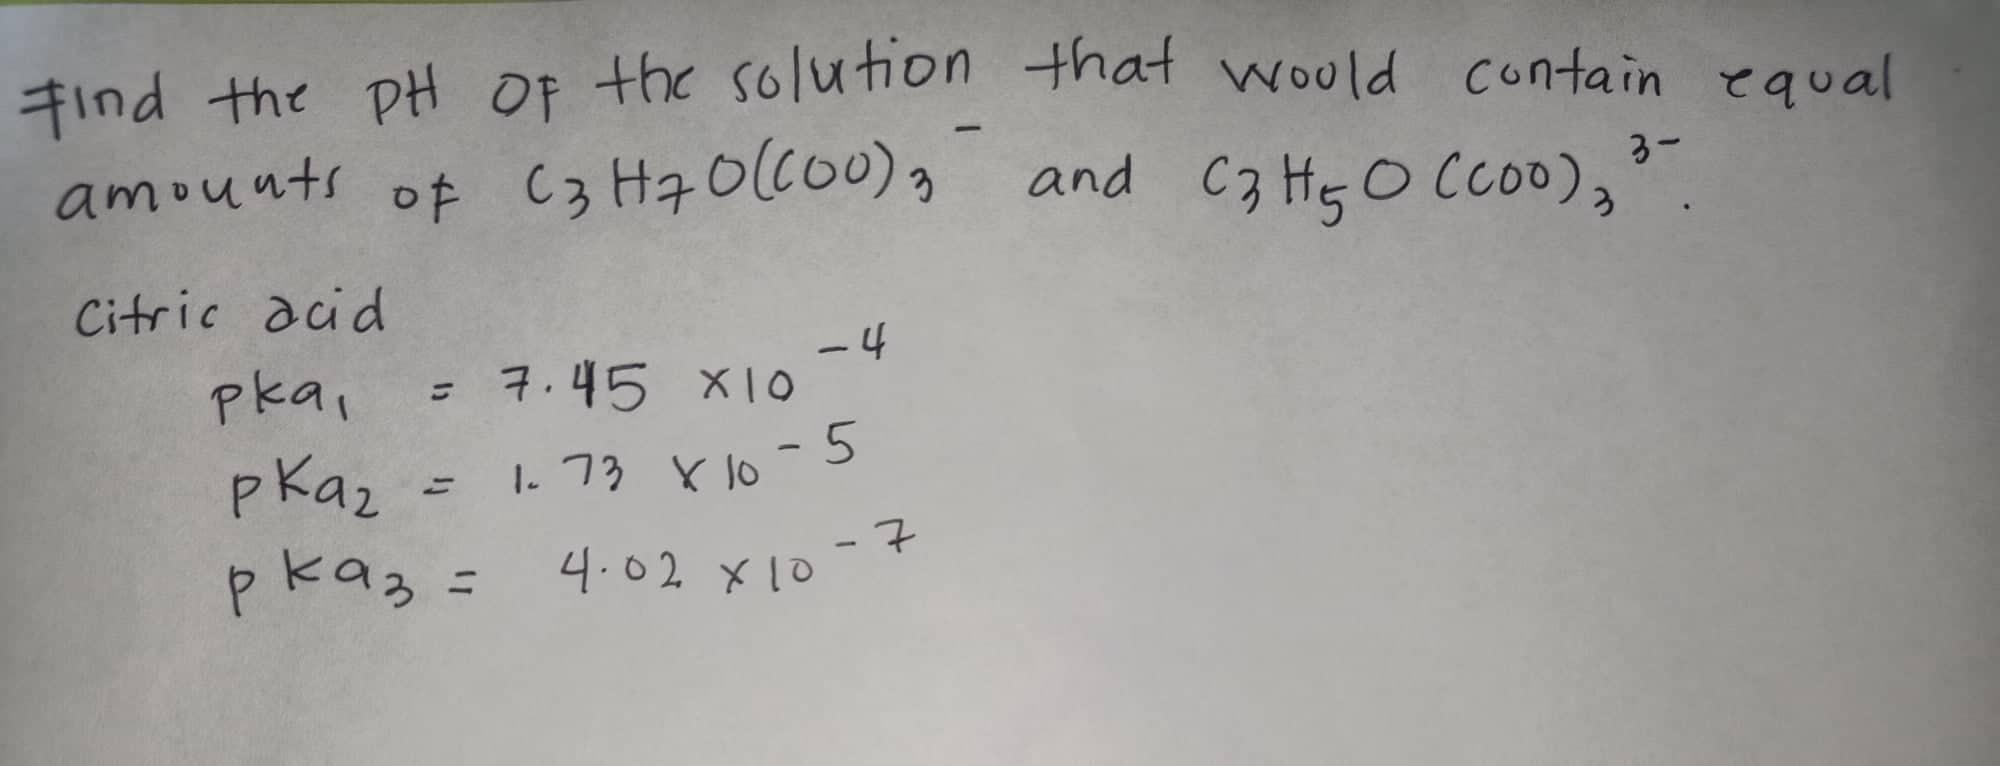 Find the pH OF the solution that would contain equal
amounts of C3H7O(COO)3⁻ and C3H5O(COO)3³⁻.
Citric acid
pka1 = 7.45 x10⁻⁴
pKa2 = 1.73 x10⁻⁵
pka3 = 4.02 x10⁻⁷